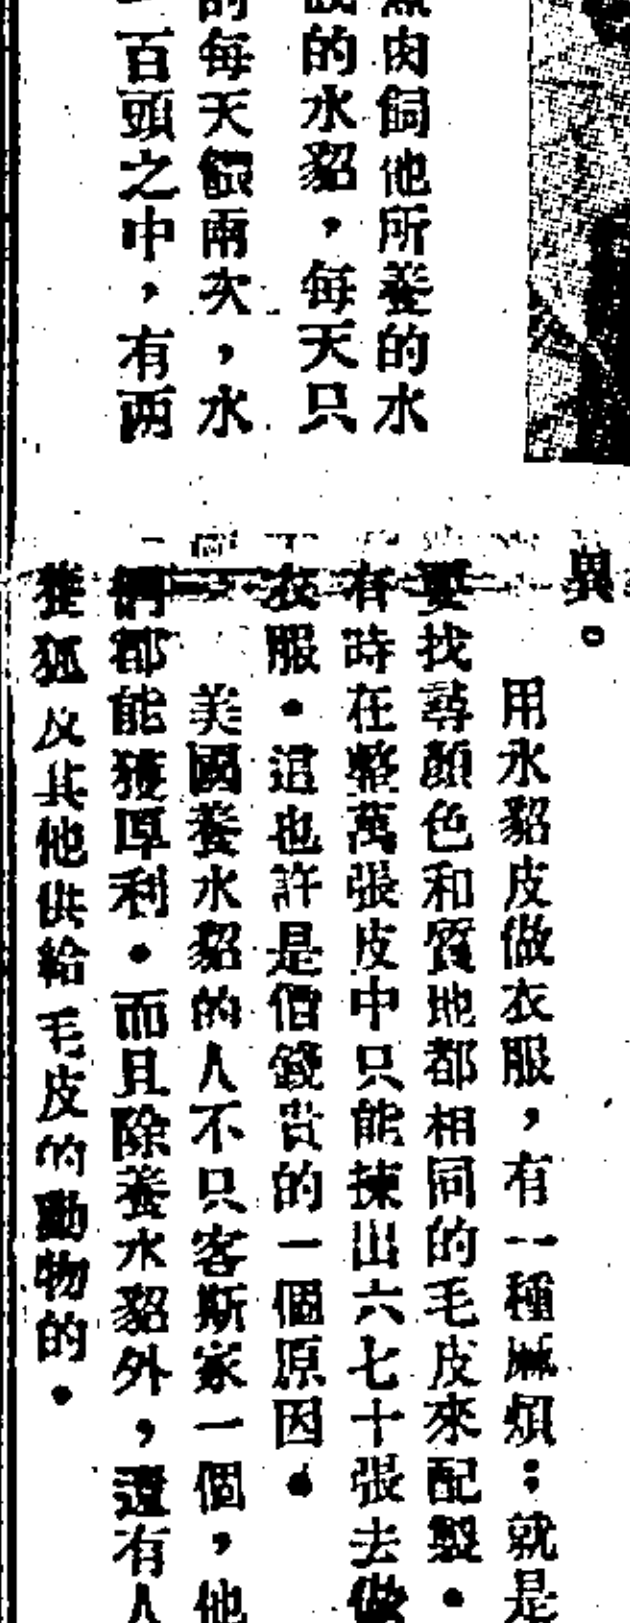 魚肉飼他所養的水
的水貂，每天只
的每天餵兩次，水
百頭之中，有两
異。
用水貂皮做衣服，有一種麻煩；就是
要找尋顏色和質地都相同的毛皮來配製．
有時在整萬張皮中只能揀出六七十張去做
衣服．這也許是價錢貴的一個原因．
美國養水貂的人不只客斯家一個，他
們都能獲厚利．而且除養水貂外，還有人
養狐及其他供給毛皮的動物的．